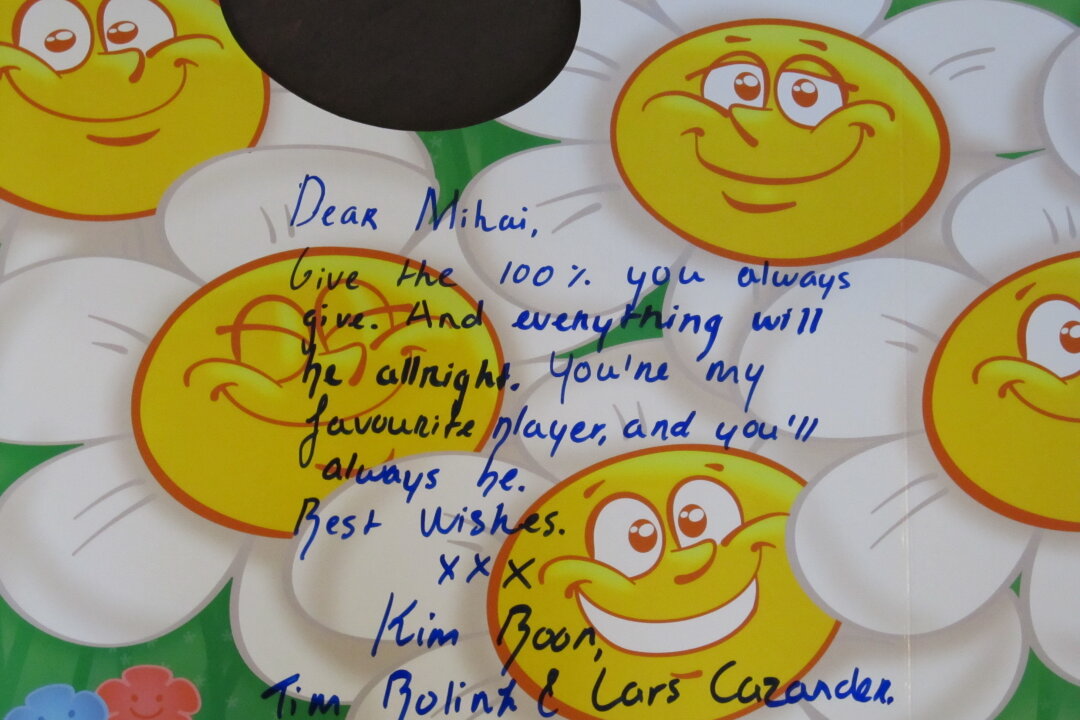 Dear Mihai,
Give the 100% you always
give. And everything will
be allright. You're my
favourite player, and you'll
always be.
Best Wishes.
xxx
Kim Boon,
Tim Bolink & Lars Cazander.